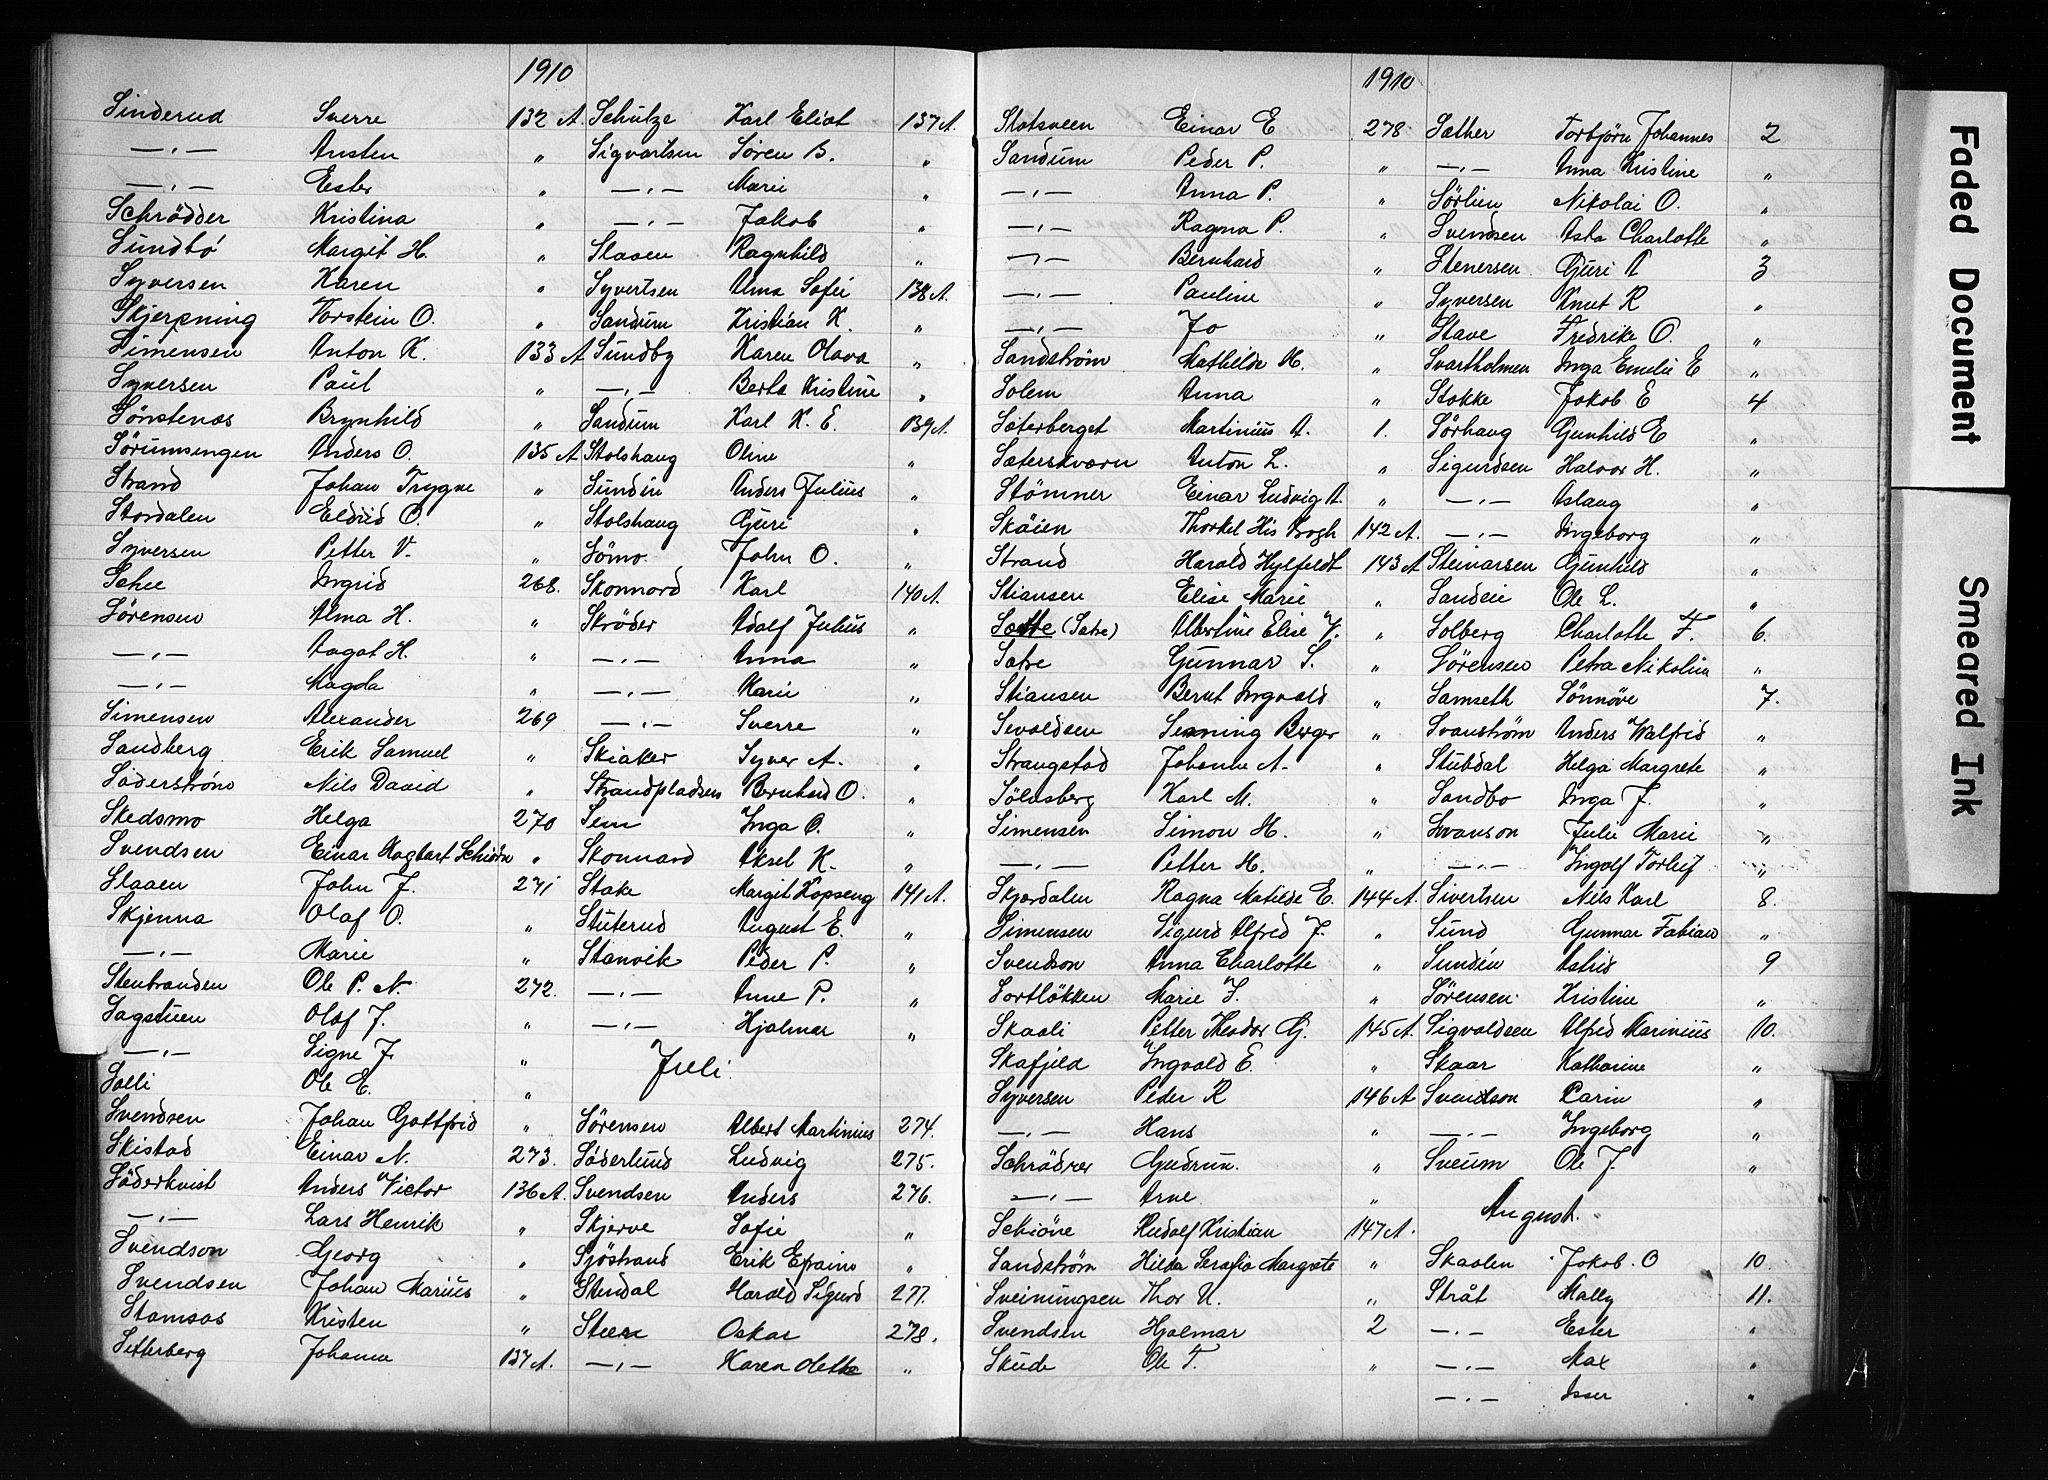 1910
Sinderud Sverre 132 A.
—„— Austen „
—„— Ester „
Schrödder Kristina „
Sundbö Margit H. „
Syversen Karen „
Skjerpning Torstein O. „
Simensen Anton K. 133 A
Syversen Paul „
Sönstenas Brynhild „
Sörumsengen Anders O. 135 A
Strand Johan Trygve „
Stordalen Eldrid O. „
Syversen Petter V. „
Schee Ingrid 268.
Sörensen Alma H. „
—„— Aagot H. „
—„— Magda „
Simensen Alexander 269
Sandberg Erik Samuel „
Söderström Nils David „
Skedsmo Helga 270
Svendsen Einar Hagbart „
Slaaen John J. 271
Skjenna Olaf O. „
—„— Marie „
Stenbraaden Ole P. N. 272.
Sagstuen Olaf J. „
—„— Signe J. „
Solli Ole E. „
Svendsen Johan Gottfrid „
Skistad Einar N. 273.
Söderkvist Anders Victor 136 A.
—„— Lars Henrik „
Svendson Georg „
Svendsen Johan Marius „
Stamsaas Kristen „
Setterberg Johanne 137 A.
Schulze Karl Eliot 137 A.
Sigvartsen Sören B. „
—„— Marie „
—„— Jakob „
Slaaen Ragnhild „
Syvertsen Alma Sofie 138 A.
Sandum Kristian K. „
Sundby Karen Olava „
—„— Berte Kristine „
Sandum Karl K. E. 139 A.
Stolshaug Oline „
Sundin Anders Julius „
Stolshaug Guri „
Sömo John O. „
Skonnord Karl 140 A.
Skröder Adolf Julius „
—„— Anna „
—„— Karin „
—„— Sverre „
Skiaker Syver A. „
Strandpladsen Bernhard O. „
Sem Inga O. „
Skonnard Aksel K. „
Stake Margit Kopseng 141 A.
Stuterud August E. „
Stanvik Peder P. „
—„— Anne P. „
—„— Hjalmar „
Juli
Sörensen Albert Martinius 274.
Söderlund Ludvig 275.
Svendsen Anders 276.
Skjerve Sofie „
Sjöstrand Erik Efraim „
Stendal Harald Sigurd 277.
Steen Oskar 278.
—„— Karen Olette „
1910
Slotsveen Einar E 278.
Sandum Peder P. „
—„— Anna P. „
—„— Ragna P. „
—„— Bernhard „
—„— Pauline „
—„— Jo „
Sandström Mathilde H. „
Solem Anna „
Säterberget Martinius A. 1.
Sæterskværn Anton L. „
Stömner Einar Ludvig A. „
Skåien Thorkel His Krogh 142 A.
Strand Harald Hylfeldt 143 A
Stiansen Elise Marie „
Sætre (Satre) Albertine Elise V. „
Satre Gunnar S. „
Stiansen Bernt Ingvald „
Sevaldsen Senning Berger „
Strangstad Johanne A. „
Sölvsberg Karl M. „
Simensen Simon H. „
—„— Petter H. „
Skjærdalen Ragna Matilde E. 144 A.
Simensen Sigurd Alfred J. „
Svendson Anna Charlotte „
Sortlökken Marie J. „
Skaali Petter Theodor G. 145 A.
Skafjeld Ingvald E. „
Syversen Peder R 146 A
—„— Hans „
Schrödrer Gudrun. „
—„— Arne „
Schiöne Rudolf Kristian 147 A.
Sandström Hilda Serafia Margrete „
Sveinungsen Thor U. „
Svendsen Hjalmar 2
Skude Ole T. „
Sæther Torbjörn Johannes 2
—„— Anna Kristine „
Sörlien Nikolai O. „
Svendsen Asta Charlotte „
Stenersen Guri A 3
Syversen Knut R „
Stave Fredrike O. „
Svartholmen Inga Emelie E „
Stokke Jakob E 4
Sörhaug Gunhild E „
Sigurdsen Halvor H. „
—„— Aslaug „
—„— Ingeborg „
Steinarsen Gunhild „
Sandeie Ole L. „
Solberg Charlotte F. 6.
Sörensen Petra Nikolina „
Samseth Sönnöve 7.
Svanström Anders Walfrid „
Stubdal Helga Margrete „
Sandbo Inga J. „
Svanson Julie Marie „
—„— Ingolf Torleif „
Sivertsen Nils Karl 8.
Sund Gunnar Fabian „
Sundén Astrid 9
Sörensen Kristine „
Sigvaldsen Alfred Marinius 10.
Skaar Katharine „
Svendson Carin „
—„— Ingeborg „
Sveum Ole J. „
August.
Skaalen Jakob O 10.
Stråt Mally 11.
—„— Ester „
—„— Max „
—„— Isser „
Faded Document
Smeared Ink